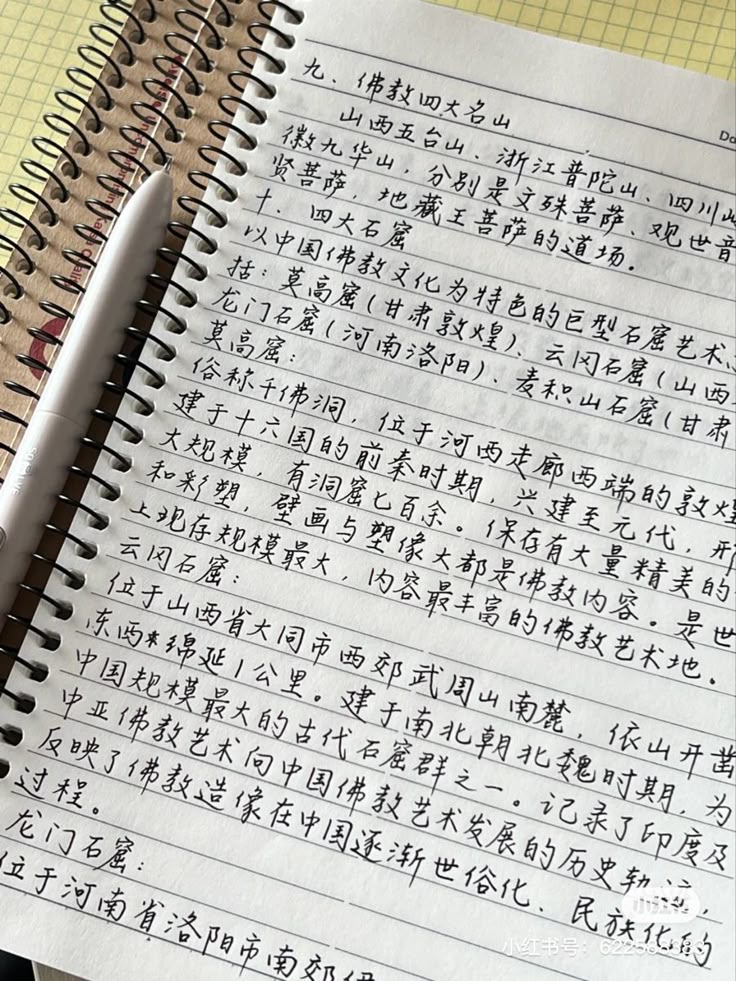 九、佛教四大名山
山西五台山、浙江普陀山、四川
徽九华山，分别是文殊菩萨、观世音
贤菩萨，地藏王菩萨的道场。
十、四大石窟
以中国佛教文化为特色的巨型石窟艺术
括：莫高窟(甘肃敦煌)、云冈石窟(山西
龙门石窟(河南洛阳)、麦积山石窟(甘肃
莫高窟：
俗称千佛洞，位于河西走廊西端的敦煌
建于十六国的前秦时期，兴建至元代，形
大规模，有洞窟七百余。保存有大量精美的
和彩塑，壁画与塑像大都是佛教内容。是世
上现存规模最大，内容最丰富的佛教艺术地。
云冈石窟：
位于山西省大同市西郊武周山南麓，依山开凿
东西绵延1公里。建于南北朝北魏时期，为
中国规模最大的古代石窟群之一。记录了印度及
中亚佛教艺术向中国佛教艺术发展的历史轨迹，
反映了佛教造像在中国逐渐世俗化、民族化的
过程。
龙门石窟：
位于河南省洛阳市南郊伊
小红书
小红书号：